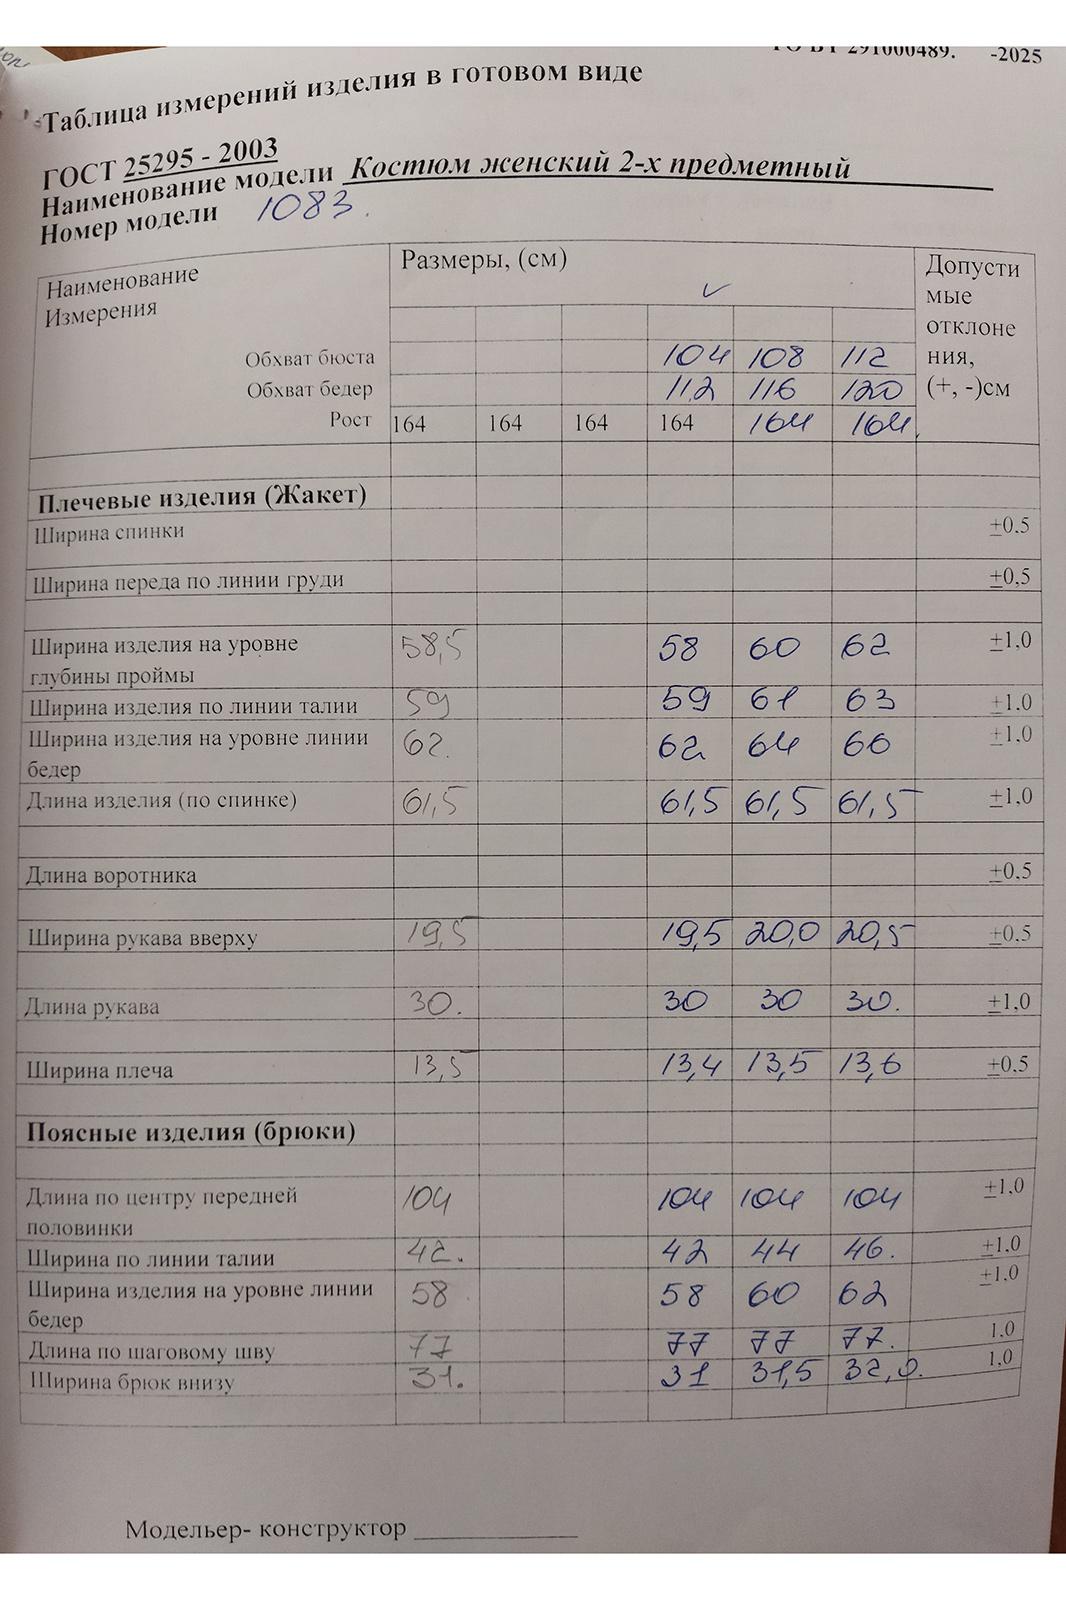 ТО ВУ 291000489. -2025
Таблица измерений изделия в готовом виде
ГОСТ 25295 - 2003
Наименование модели Костюм женский 2-х предметный
Номер модели 1083.
Наименование Измерения Размеры, (см) Допустимые отклонения, (+, -)см
Обхват бюста 104 108 112
Обхват бедер 112 116 120
Рост 164 164 164 164 164 164
Плечевые изделия (Жакет)
Ширина спинки ±0.5
Ширина переда по линии груди ±0,5
Ширина изделия на уровне глубины проймы 58,5 58 60 62 ±1,0
Ширина изделия по линии талии 59 59 61 63 ±1.0
Ширина изделия на уровне линии бедер 62. 62 64 66 ±1,0
Длина изделия (по спинке) 61,5 61,5 61,5 61,5 ±1,0
Длина воротника ±0.5
Ширина рукава вверху 19,5 19,5 20,0 20,5 ±0.5
Длина рукава 30. 30 30 30. ±1,0
Ширина плеча 13,5 13,4 13,5 13,6 ±0.5
Поясные изделия (брюки)
Длина по центру передней половинки 104 104 104 104 ±1,0
Ширина по линии талии 42. 42 44 46. ±1,0
Ширина изделия на уровне линии бедер 58 58 60 62 ±1,0
Длина по шаговому шву 77 77 77 77. 1.0
Ширина брюк внизу 31. 31 31,5 32,0. 1,0
Модельер- конструктор